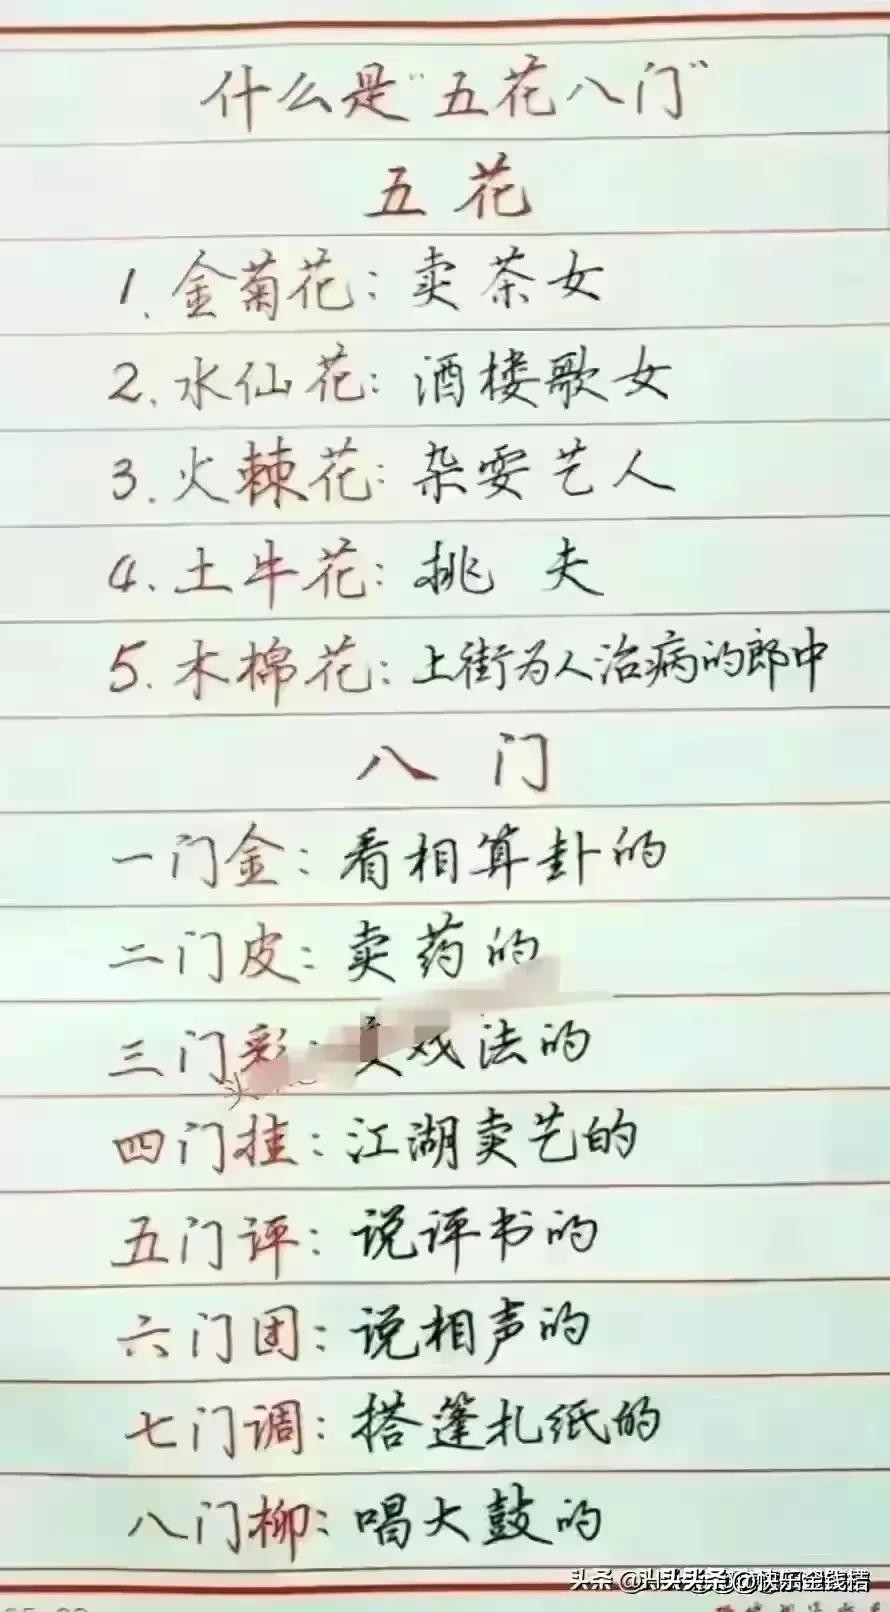 什么是"五花八门"
五花
1.金菊花:卖茶女
2.水仙花:酒楼歌女
3.火棘花:杂耍艺人
4.土牛花:挑夫
5.木棉花:上街为人治病的郎中
八门
一门金:看相算卦的
二门皮:卖药的
三门彩:戏法的
四门挂:江湖卖艺的
五门评:说评书的
六门团:说相声的
七门调:搭篷扎纸的
八门柳:唱大鼓的
头条 @快乐金钱桔